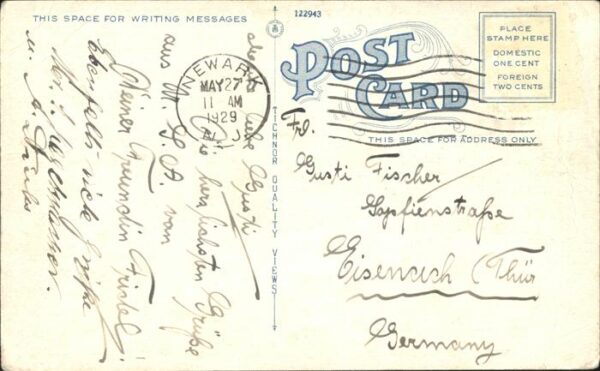 THIS SPACE FOR WRITING MESSAGES
122943
POST
CARD
PLACE
STAMP HERE
DOMESTIC
ONE CENT
FOREIGN
TWO CENTS
THIS SPACE FOR ADDRESS ONLY
NEWARK
MAY 27
11 AM
1929
N. J.
TICHNOR QUALITY VIEWS
liebe Gusti
Die herzlichsten Grüße
aus U. S. A. von
Deiner Freundin Friedal.
Ebenfalls viele Grüße
Frl.
Gusti Fischer
Sophienstraße
Eisenach (Thür
Germany